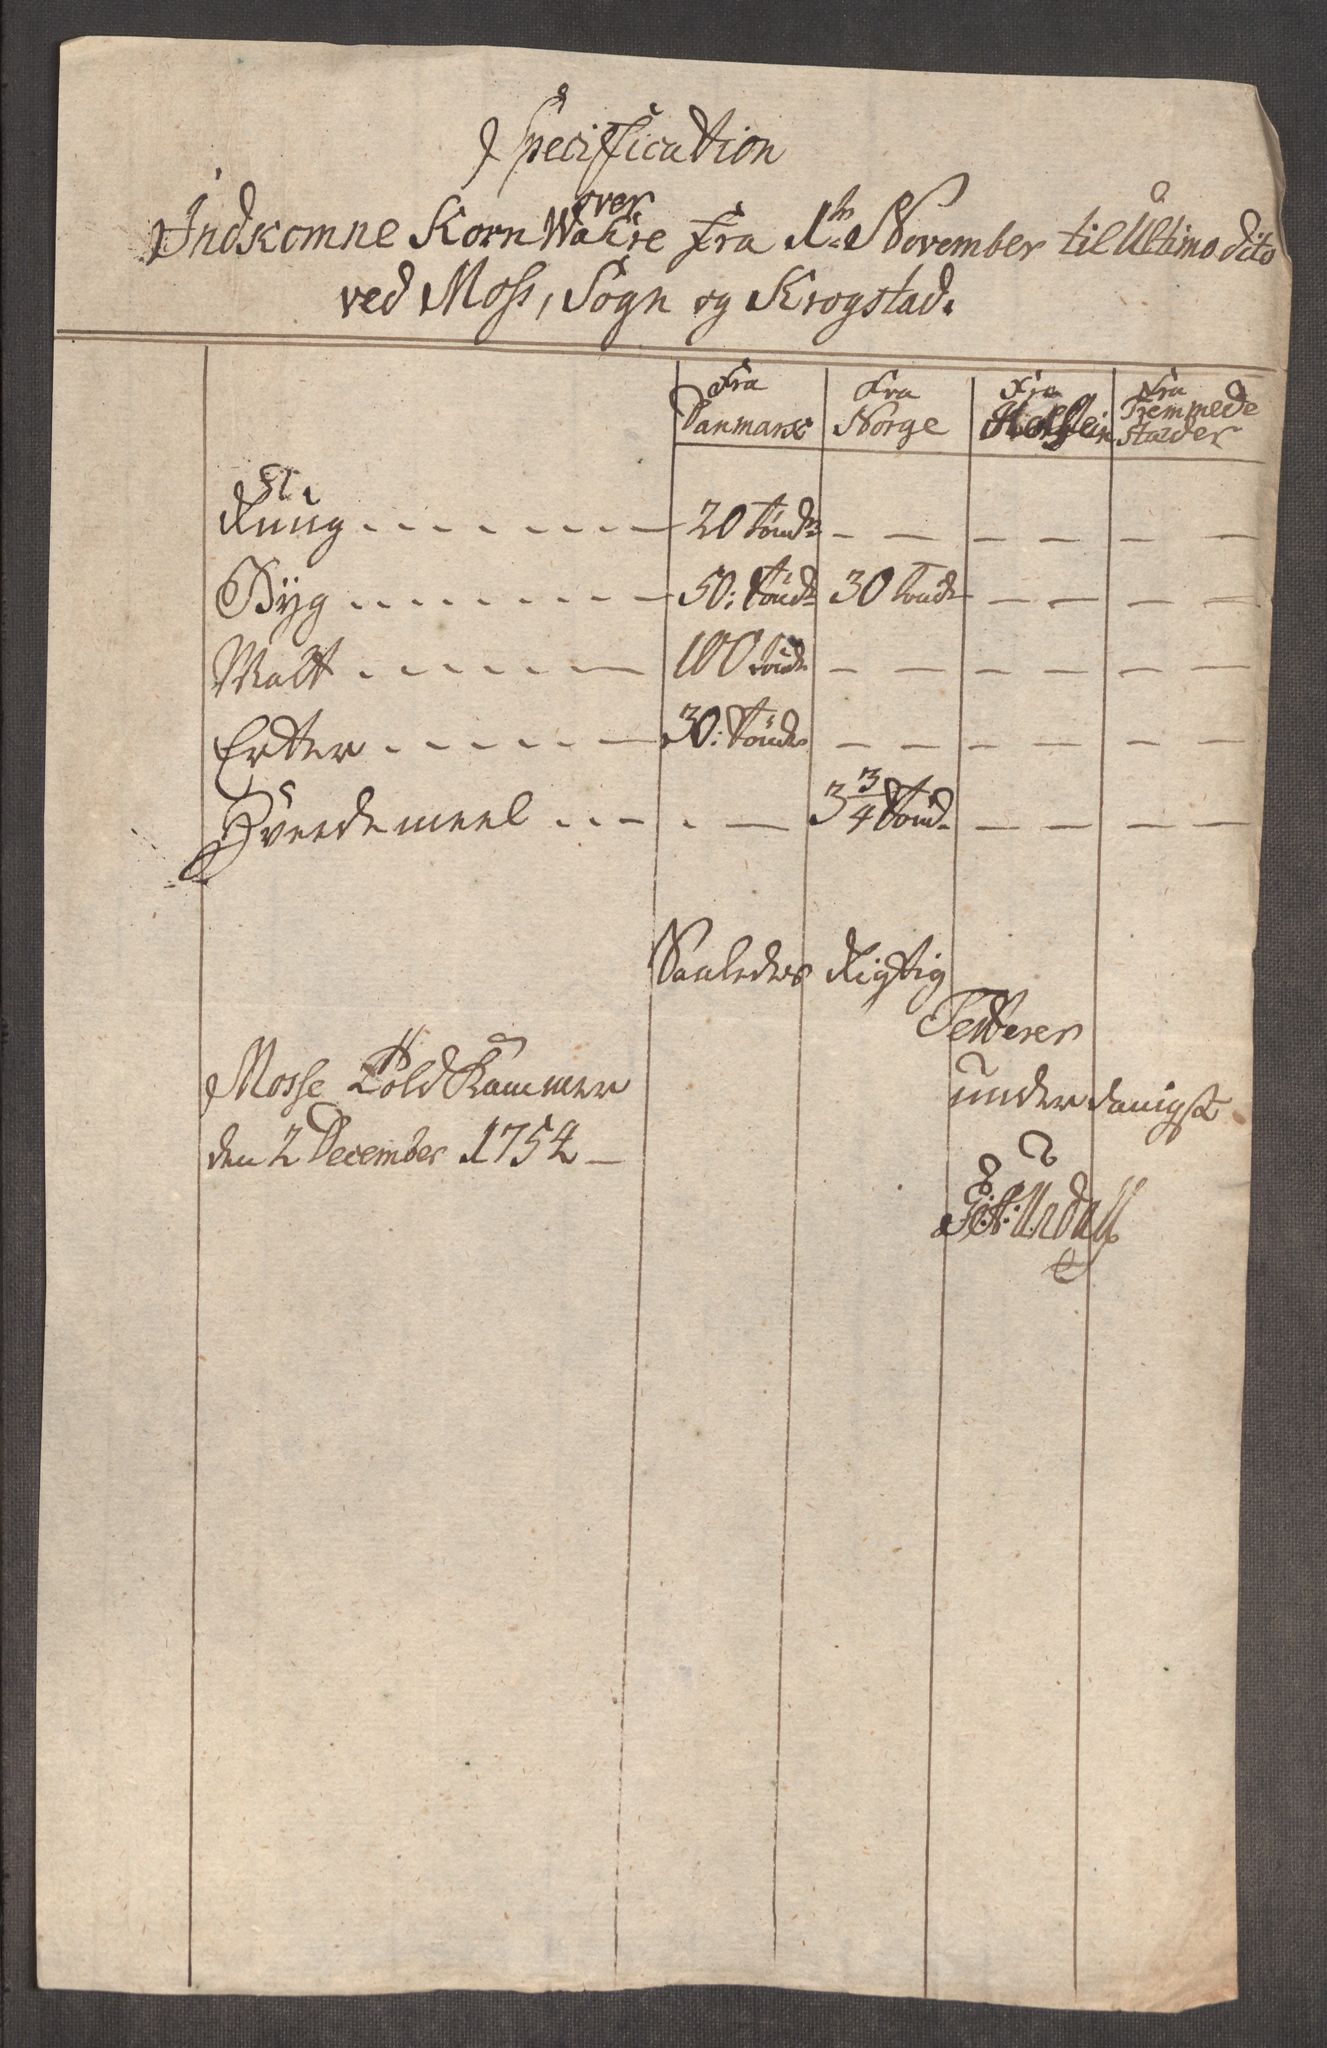 Specification
over
Indkomne Korn Wahre fra 1ste November til Ultimo dito
ved Moss, Sogn og Krogstad.
Fra Danmark Fra Norge Fra Holstein Fra Fremmede stæder
Rüug 20 tønder — — — — — —
Byg 50: tønder 30 tønder — — — —
Malt 100 tønder — — — — — —
Erter 30: tønder — — — — — —
Hveedemeel — 3 3/4 tønder — — — —
Saaledes Rigtig
Testerer
underdanigst
Mosse Told Kammer
den 2 December 1754